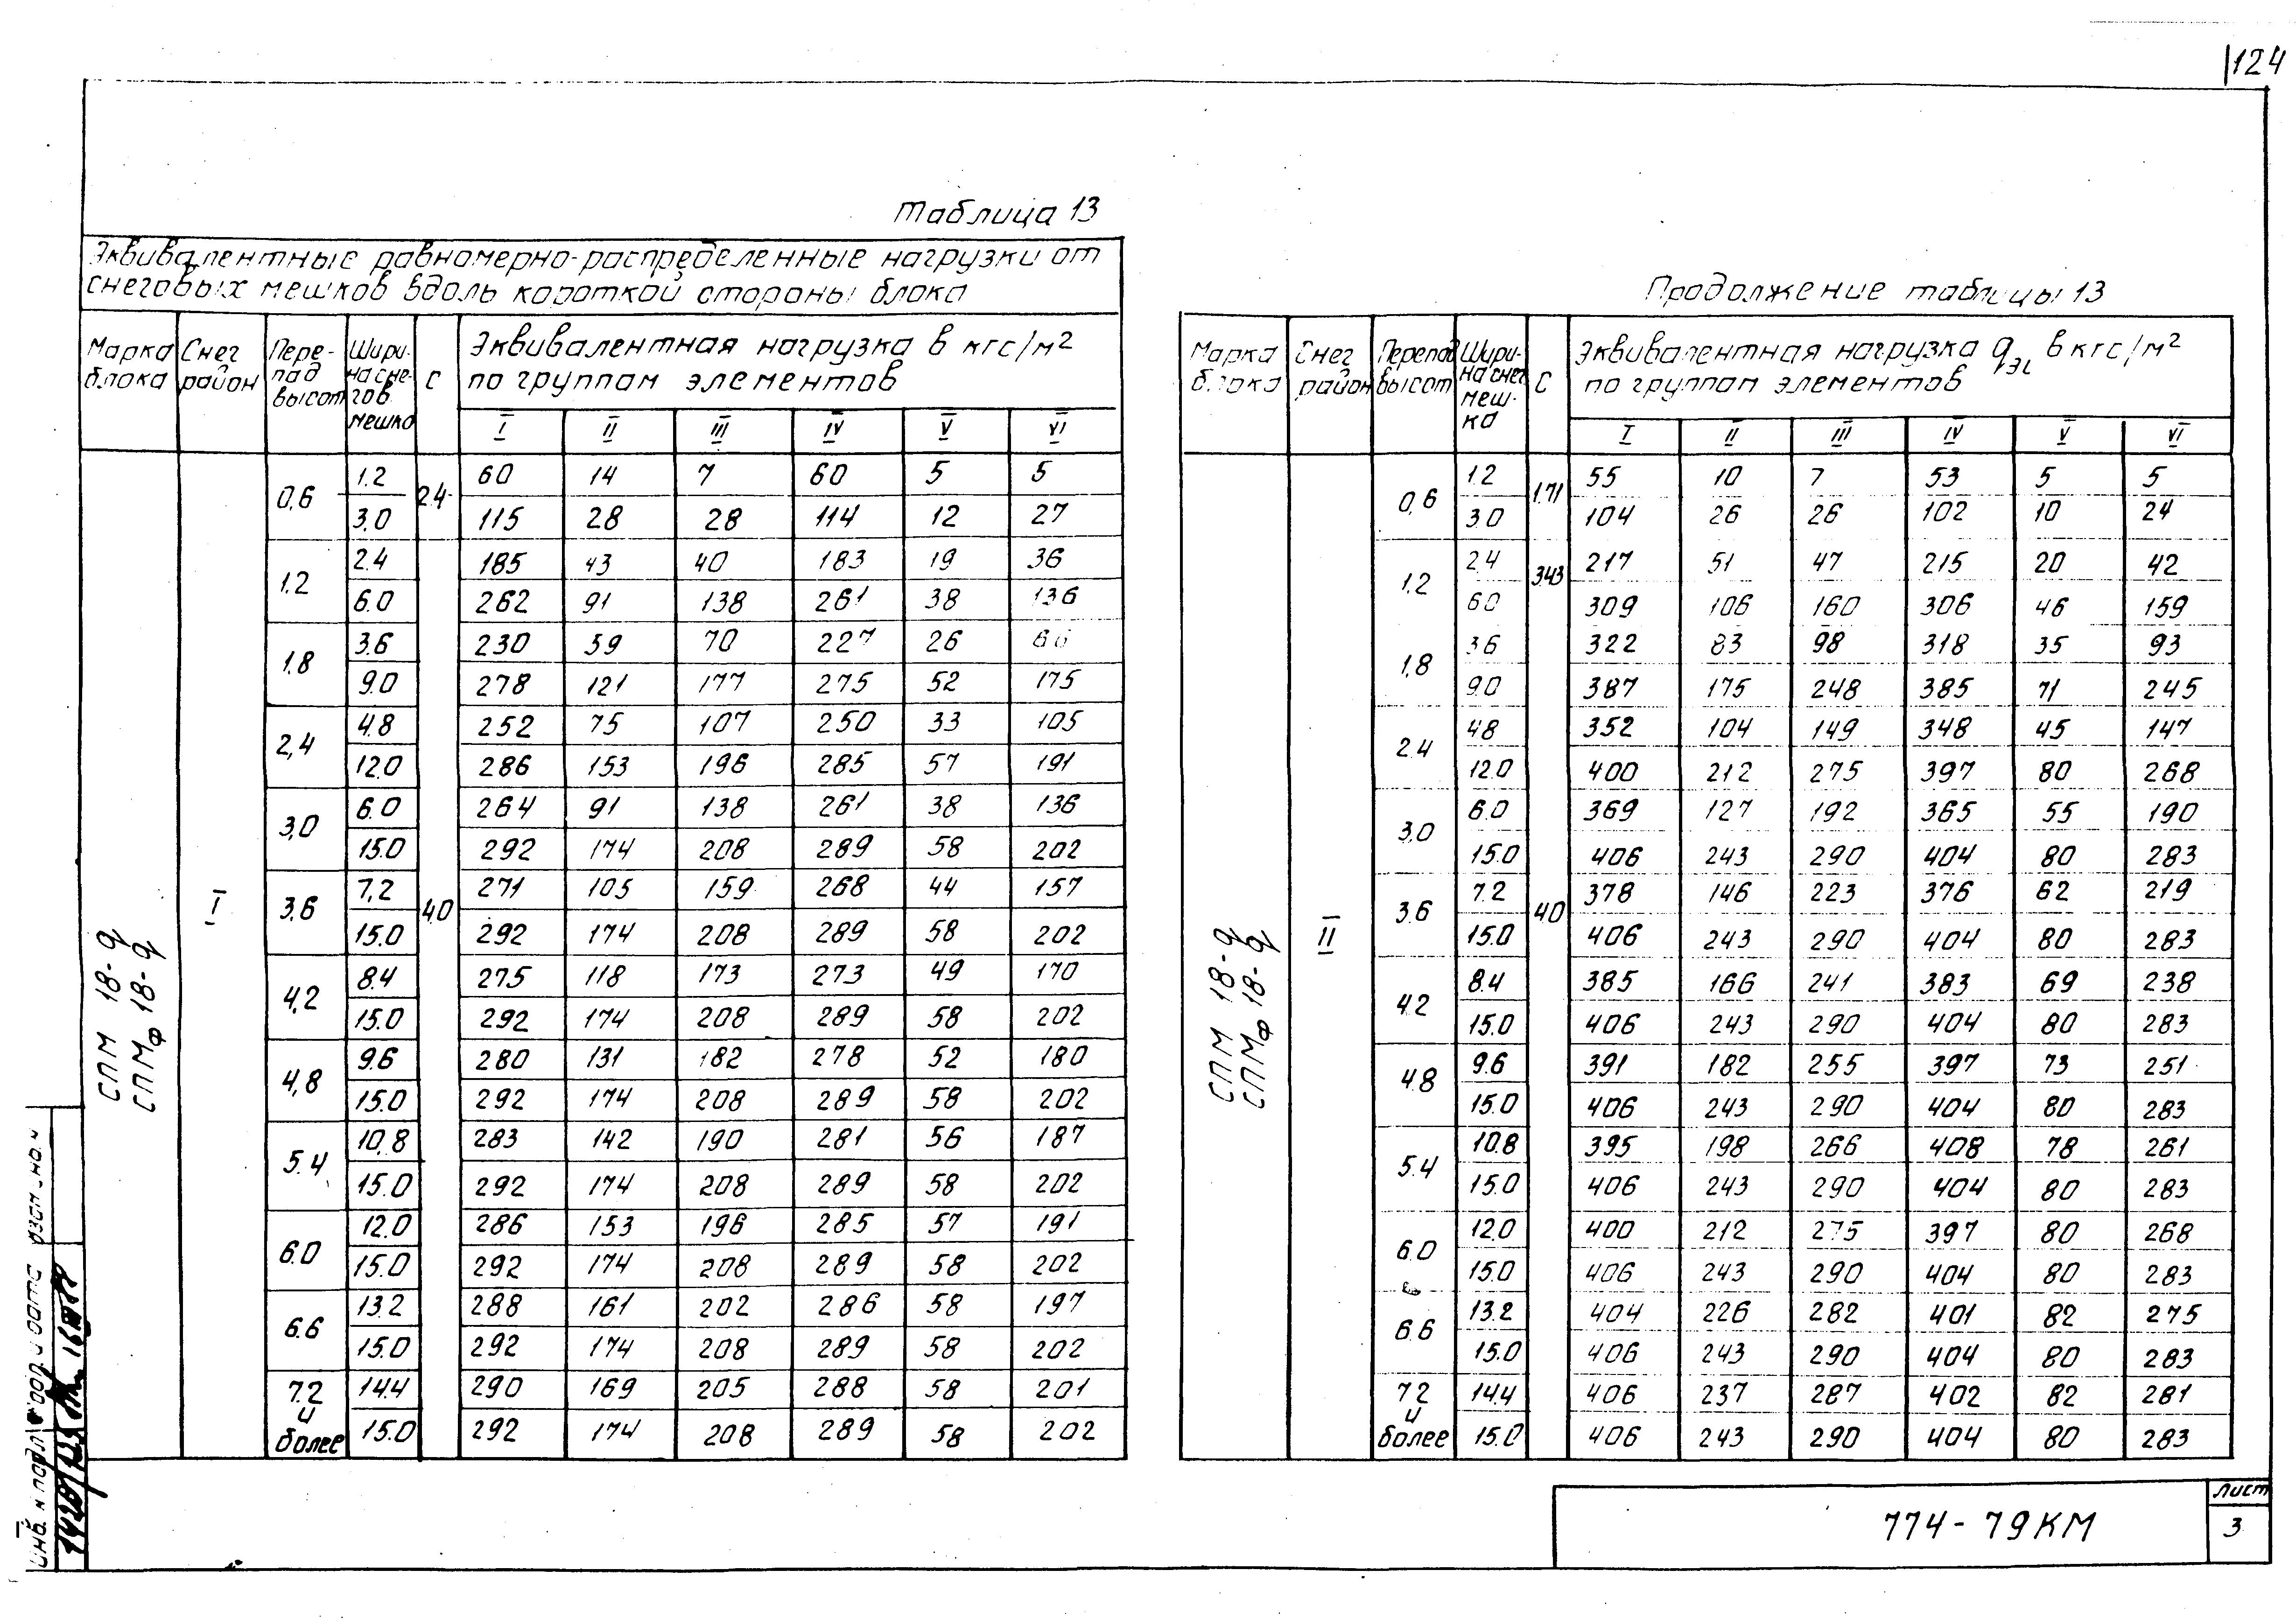 124
Таблица 13
Эквивалентные равномерно-распределенные нагрузки от
снеговых мешков вдоль короткой стороны блока
Марка блока | Снег район | Пере-пад высот | Шири-на сне-гов. мешка | С | Эквивалентная нагрузка в кгс/м² по группам элементов
I II III IV V VI
СПМ 18-q
СПМф 18-q
I
0,6 1.2 2.4 60 14 7 60 5 5
3,0 115 28 28 114 12 27
1.2 2.4 185 43 40 183 19 36
6.0 262 91 138 261 38 136
1,8 3.6 230 59 70 227 26
9.0 278 121 177 275 52 175
2,4 4.8 252 75 107 250 33 105
12.0 286 153 196 285 57 191
3,0 6.0 264 91 138 261 38 136
15.0 292 174 208 289 58 202
3,6 7,2 4.0 271 105 159 268 44 157
15.0 292 174 208 289 58 202
4,2 8.4 275 118 173 273 49 170
15.0 292 174 208 289 58 202
4,8 9.6 280 131 182 278 52 180
15.0 292 174 208 289 58 202
5.4 10,8 283 142 190 281 56 187
15.0 292 174 208 289 58 202
6.0 12.0 286 153 196 285 57 191
15.0 292 174 208 289 58 202
6.6 13.2 288 161 202 286 58 197
15.0 292 174 208 289 58 202
7.2 и более 14.4 290 169 205 288 58 201
15.0 292 174 208 289 58 202
Продолжение таблицы 13
Марка блока | Снег район | Перепад высот | Шири-на снег меш-ка | С | Эквивалентная нагрузка qэi в кгс/м² по группам элементов
I II III IV V VI
СПМ 18-q
СПМф 18-q
II
0,6 1.2 1.71 55 10 7 53 5 5
3.0 104 26 26 102 10 24
1.2 2.4 3.43 217 51 47 215 20 42
6.0 309 106 160 306 46 159
1,8 3.6 322 83 98 318 35 93
9.0 387 175 248 385 71 245
2.4 4.8 352 104 149 348 45 147
12.0 400 212 275 397 80 268
3,0 6.0 369 127 192 365 55 190
15.0 406 243 290 404 80 283
3.6 7.2 4.0 378 146 223 376 62 219
15.0 406 243 290 404 80 283
4.2 8.4 385 166 241 383 69 238
15.0 406 243 290 404 80 283
4.8 9.6 391 182 255 397 73 251
15.0 406 243 290 404 80 283
5.4 10.8 395 198 266 408 78 261
15.0 406 243 290 404 80 283
6.0 12.0 400 212 275 397 80 268
15.0 406 243 290 404 80 283
6.6 13.2 404 226 282 401 82 275
15.0 406 243 290 404 80 283
7.2 и более 14.4 406 237 287 402 82 281
15.0 406 243 290 404 80 283
Инв. н подл
774-79КМ
Лист
3